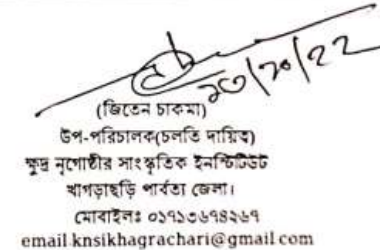 ২০/১০/২২
(জিতেন চাকমা)
উপ-পরিচালক(চলতি দায়িত্ব)
ক্ষুদ্র নৃগোষ্ঠীর সাংস্কৃতিক ইনস্টিটিউট
খাগড়াছড়ি পার্বত্য জেলা।
মোবাইলঃ ০১৭১৩৬৭৪২৬৭
email.knsikhagrachari@gmail.com